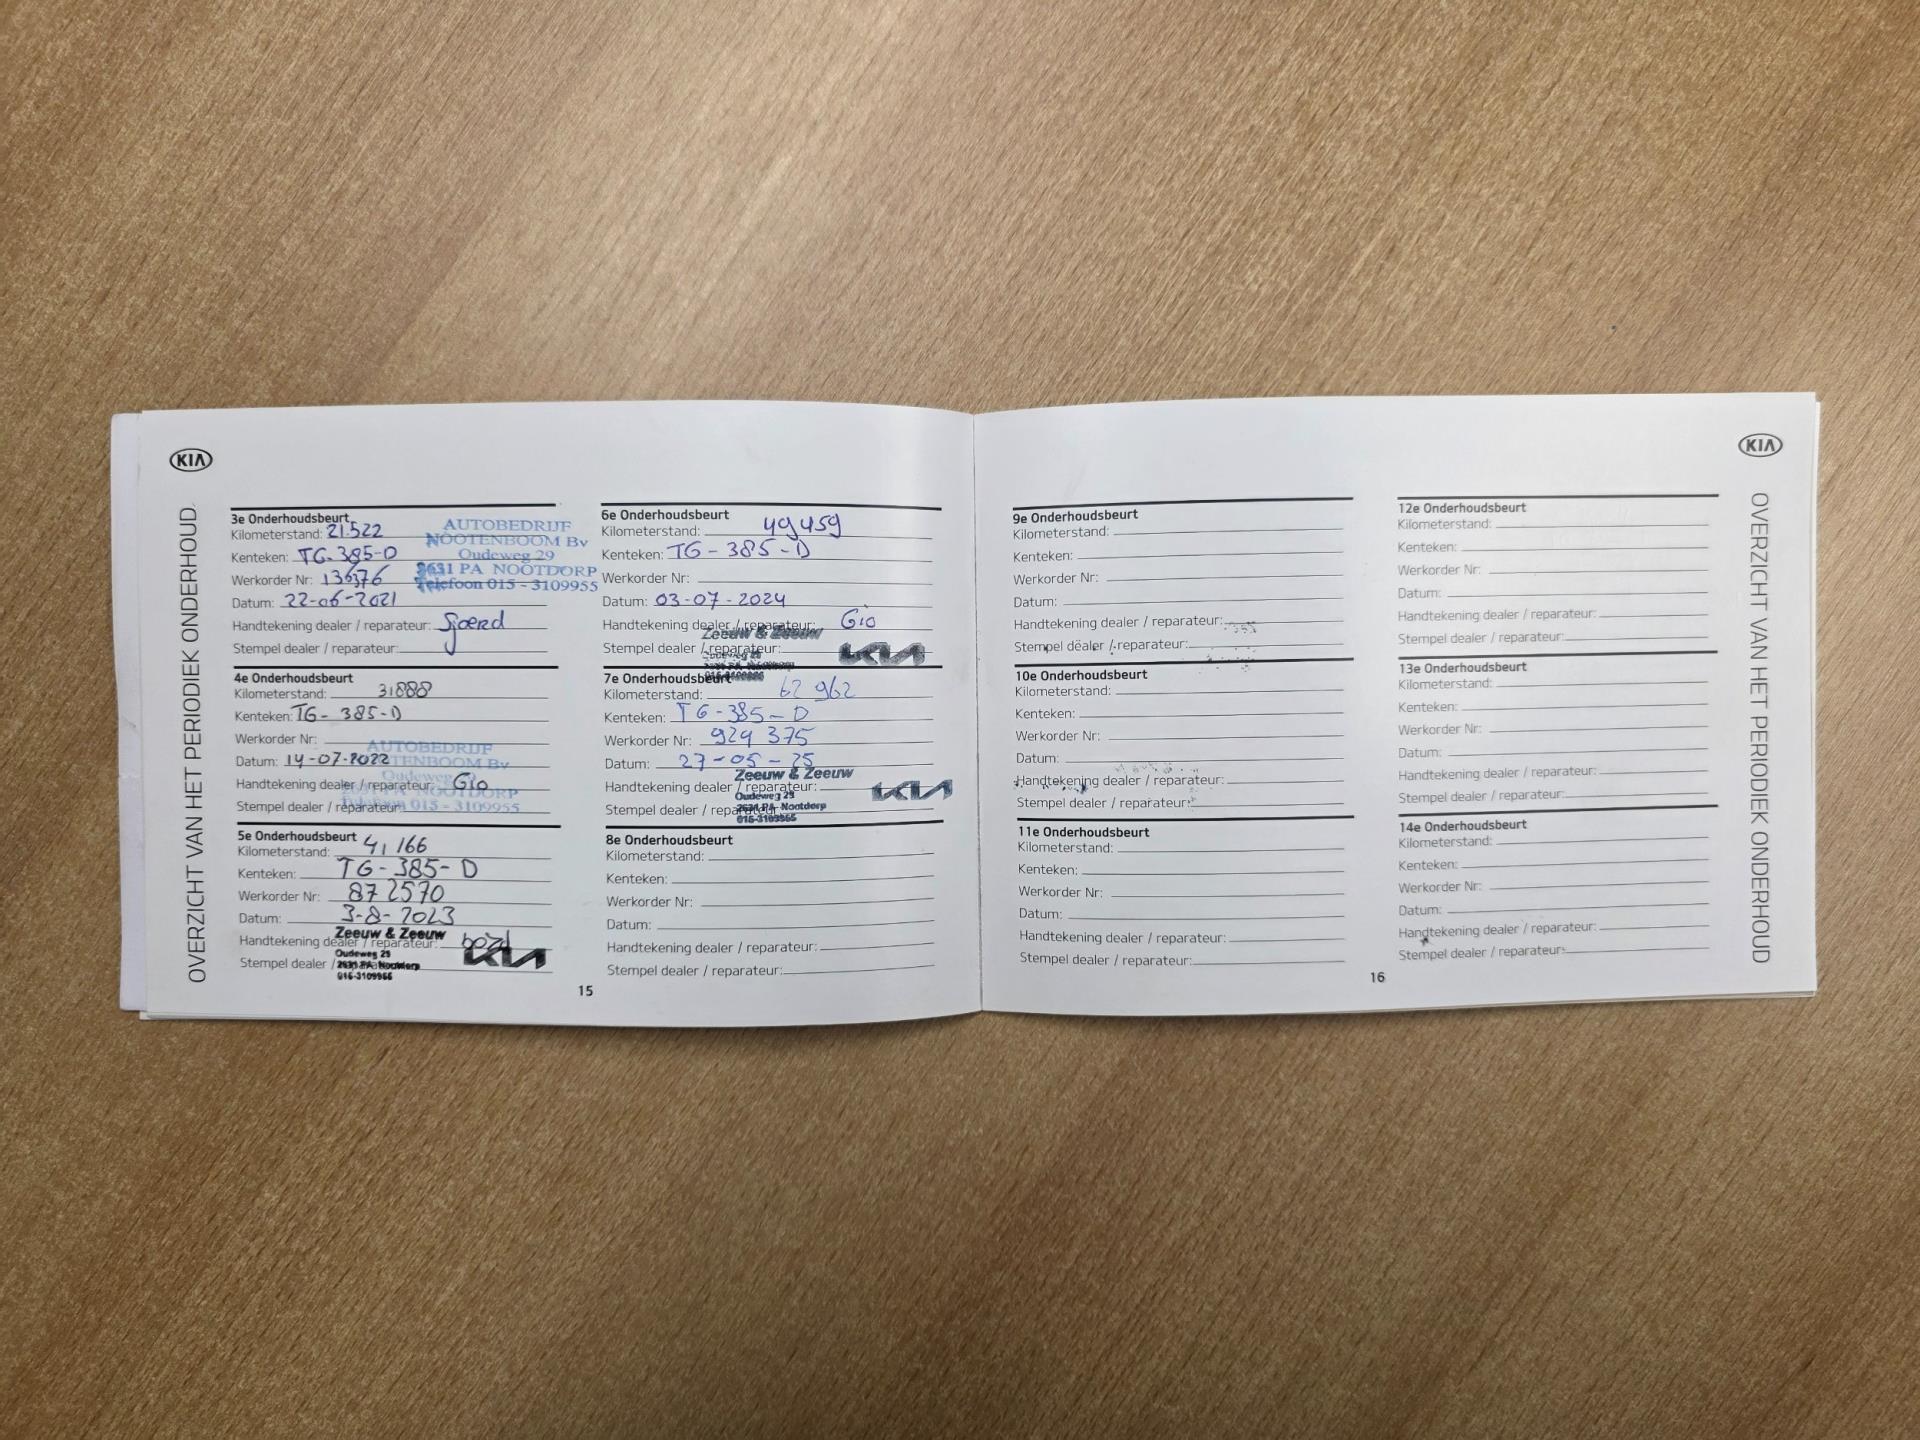 KIA
OVERZICHT VAN HET PERIODIEK ONDERHOUD
3e Onderhoudsbeurt
Kilometerstand: 21.522
Kenteken: TG-385-D
Werkorder Nr: 136376
Datum: 22-06-2021
Handtekening dealer / reparateur: Sjoerd
Stempel dealer / reparateur:
AUTOBEDRIJF
NOOTENBOOM Bv
Oudeweg 29
2631 PA NOOTDORP
Telefoon 015 - 3109955
4e Onderhoudsbeurt
Kilometerstand: 31888
Kenteken: TG- 385-D
Werkorder Nr:
Datum: 14-07-2022
Handtekening dealer / reparateur: Gio
Stempel dealer / reparateur:
AUTOBEDRIJF
NOOTENBOOM Bv
Oudeweg
PA NOOTDORP
Telefoon 015 - 3109955
5e Onderhoudsbeurt
Kilometerstand: 41 166
Kenteken: TG-385-D
Werkorder Nr: 872570
Datum: 3-8-2023
Handtekening dealer / reparateur:
Stempel dealer / reparateur:
Zeeuw & Zeeuw
Oudeweg 29
2631 PA Nootdorp
015-3109955
KIA
6e Onderhoudsbeurt
Kilometerstand: 49459
Kenteken: TG - 385 - D
Werkorder Nr:
Datum: 03-07-2024
Handtekening dealer / reparateur: Gio
Stempel dealer / reparateur:
Zeeuw & Zeeuw
Oudeweg 29
2631 PA Nootdorp
015-3109955
KIA
7e Onderhoudsbeurt
Kilometerstand: 62 962
Kenteken: TG-385-D
Werkorder Nr: 924 375
Datum: 27-05-25
Handtekening dealer / reparateur:
Stempel dealer / reparateur:
Zeeuw & Zeeuw
Oudeweg 29
2631 PA Nootdorp
015-3109955
KIA
8e Onderhoudsbeurt
Kilometerstand:
Kenteken:
Werkorder Nr:
Datum:
Handtekening dealer / reparateur:
Stempel dealer / reparateur:
15
9e Onderhoudsbeurt
Kilometerstand:
Kenteken:
Werkorder Nr:
Datum:
Handtekening dealer / reparateur:
Stempel dealer / reparateur:
10e Onderhoudsbeurt
Kilometerstand:
Kenteken:
Werkorder Nr:
Datum:
Handtekening dealer / reparateur:
Stempel dealer / reparateur:
11e Onderhoudsbeurt
Kilometerstand:
Kenteken:
Werkorder Nr:
Datum:
Handtekening dealer / reparateur:
Stempel dealer / reparateur:
12e Onderhoudsbeurt
Kilometerstand:
Kenteken:
Werkorder Nr:
Datum:
Handtekening dealer / reparateur:
Stempel dealer / reparateur:
13e Onderhoudsbeurt
Kilometerstand:
Kenteken:
Werkorder Nr:
Datum:
Handtekening dealer / reparateur:
Stempel dealer / reparateur:
14e Onderhoudsbeurt
Kilometerstand:
Kenteken:
Werkorder Nr:
Datum:
Handtekening dealer / reparateur:
Stempel dealer / reparateur:
16
KIA
OVERZICHT VAN HET PERIODIEK ONDERHOUD